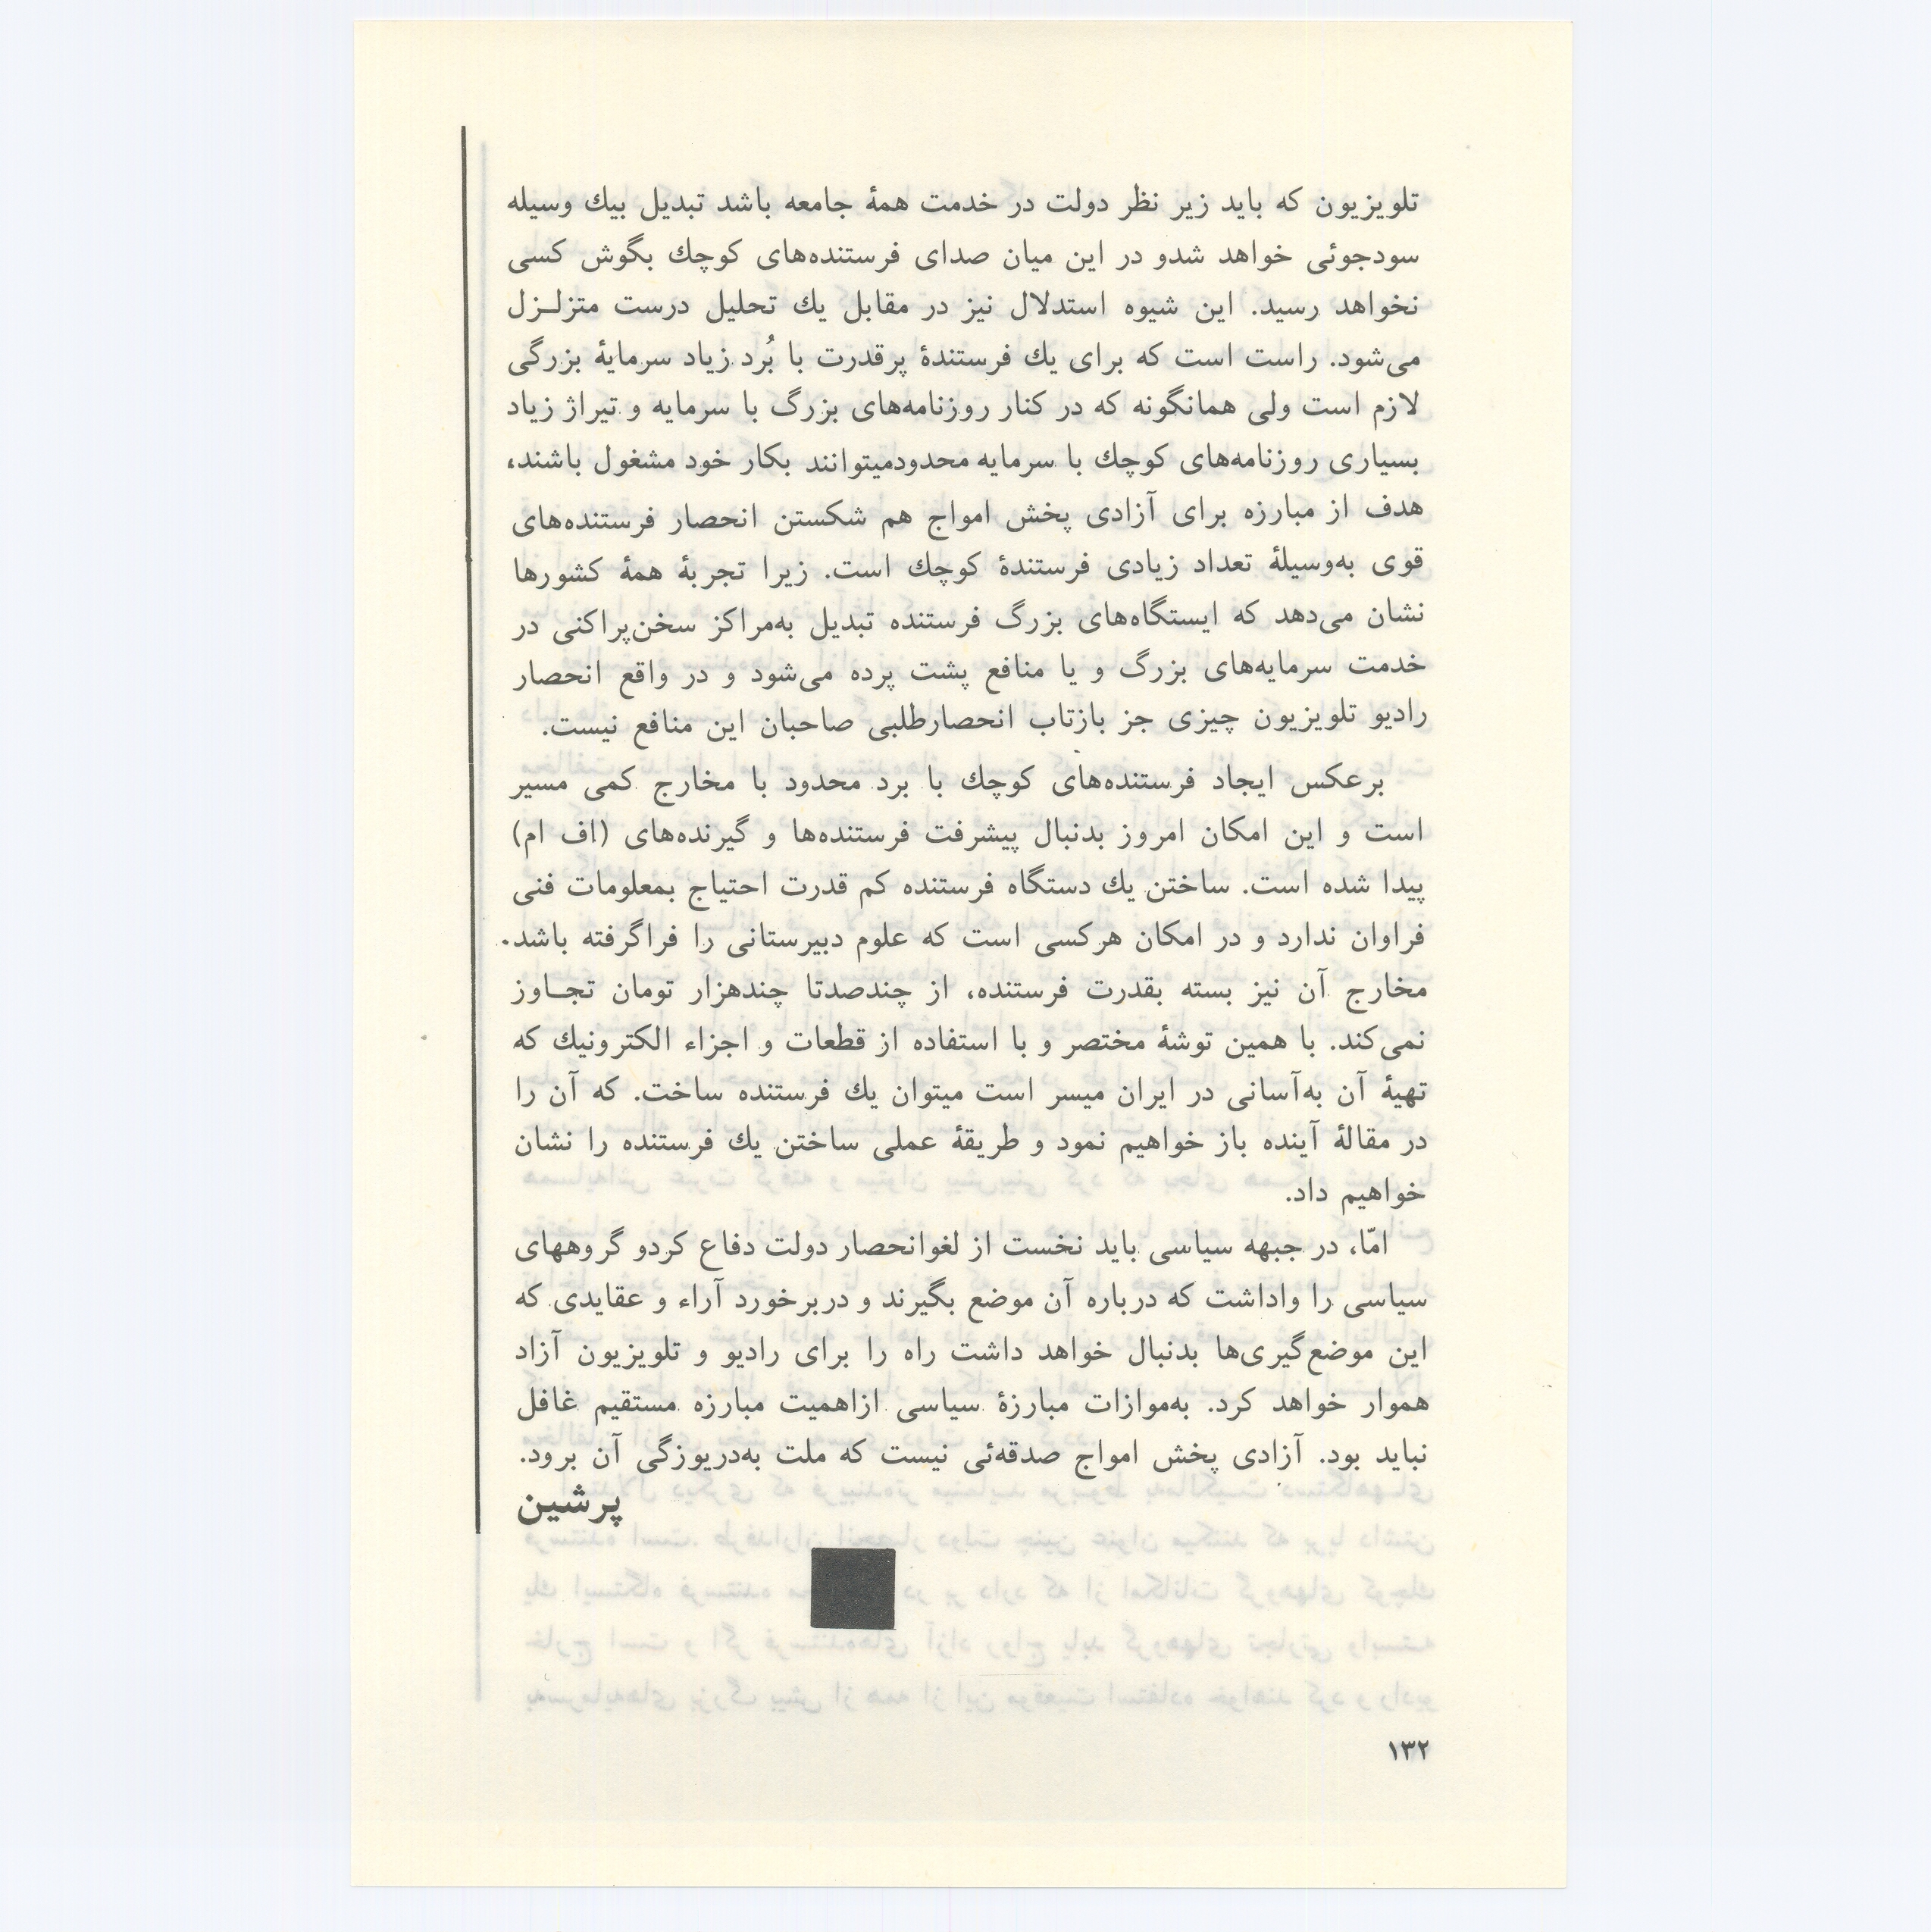 تلویزیون که باید زیر نظر دولت در خدمت همهٔ جامعه باشد تبدیل بیك وسیله
سودجوئی خواهد شدو در این میان صدای فرستنده‌های کوچك بگوش کسی
نخواهد رسید. این شیوه استدلال نیز در مقابل یك تحلیل درست متزلـزل
می‌شود. راست است که برای یك فرستندهٔ پرقدرت با بُرد زیاد سرمایهٔ بزرگی
لازم است ولی همانگونه که در کنار روزنامه‌های بزرگ با سرمایه و تیراژ زیاد
بسیاری روزنامه‌های کوچك با سرمایه محدودمیتوانند بکار خود مشغول باشند،
هدف از مبارزه برای آزادی پخش امواج هم شکستن انحصار فرستنده‌های
قوی به‌وسیلهٔ تعداد زیادی فرستندهٔ کوچك است. زیرا تجربهٔ همهٔ کشورها
نشان می‌دهد که ایستگاه‌های بزرگ فرستنده تبدیل به‌مراکز سخن‌پراکنی در
خدمت سرمایه‌های بزرگ و یا منافع پشت پرده می‌شود و در واقع انحصار
رادیو تلویزیون چیزی جز بازتاب انحصارطلبی صاحبان این منافع نیست.
برعکس ایجاد فرستنده‌های کوچك با برد محدود با مخارج کمی مسیر
است و این امکان امروز بدنبال پیشرفت فرستنده‌ها و گیرنده‌های (اف ام)
پیدا شده است. ساختن یك دستگاه فرستنده کم قدرت احتیاج بمعلومات فنی
فراوان ندارد و در امکان هرکسی است که علوم دبیرستانی را فراگرفته باشد.
مخارج آن نیز بسته بقدرت فرستنده، از چندصدتا چندهزار تومان تجـاوز
نمی‌کند. با همین توشهٔ مختصر و با استفاده از قطعات و اجزاء الکترونیك که
تهیهٔ آن به‌آسانی در ایران میسر است میتوان یك فرستنده ساخت. که آن را
در مقالهٔ آینده باز خواهیم نمود و طریقهٔ عملی ساختن یك فرستنده را نشان
خواهیم داد.
امّا، در جبهه سیاسی باید نخست از لغوانحصار دولت دفاع کردو گروههای
سیاسی را واداشت که درباره آن موضع بگیرند و دربرخورد آراء و عقایدی که
این موضع‌گیری‌ها بدنبال خواهد داشت راه را برای رادیو و تلویزیون آزاد
هموار خواهد کرد. به‌موازات مبارزهٔ سیاسی ازاهمیت مبارزه مستقیم غافل
نباید بود. آزادی پخش امواج صدقه‌ئی نیست که ملت به‌دریوزگی آن برود.
پرشین
۱۳۲